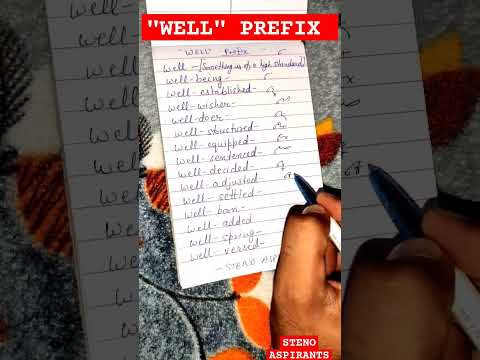 "WELL" PREFIX
"WELL" Prefix
Well - (Something is of a high standard)
well-being-
well-established-
well-wisher-
well-doer-
well-structured-
well-equipped-
well-sentenced-
well-decided-
well-adjusted
well-settled-
well-born-
well-added
well-spring-
well-versed-
- STENO
STENO
ASPIRANTS